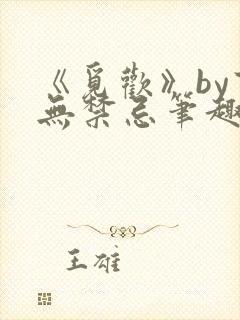 《覓歡》by
無禁忌筆趣
王雄